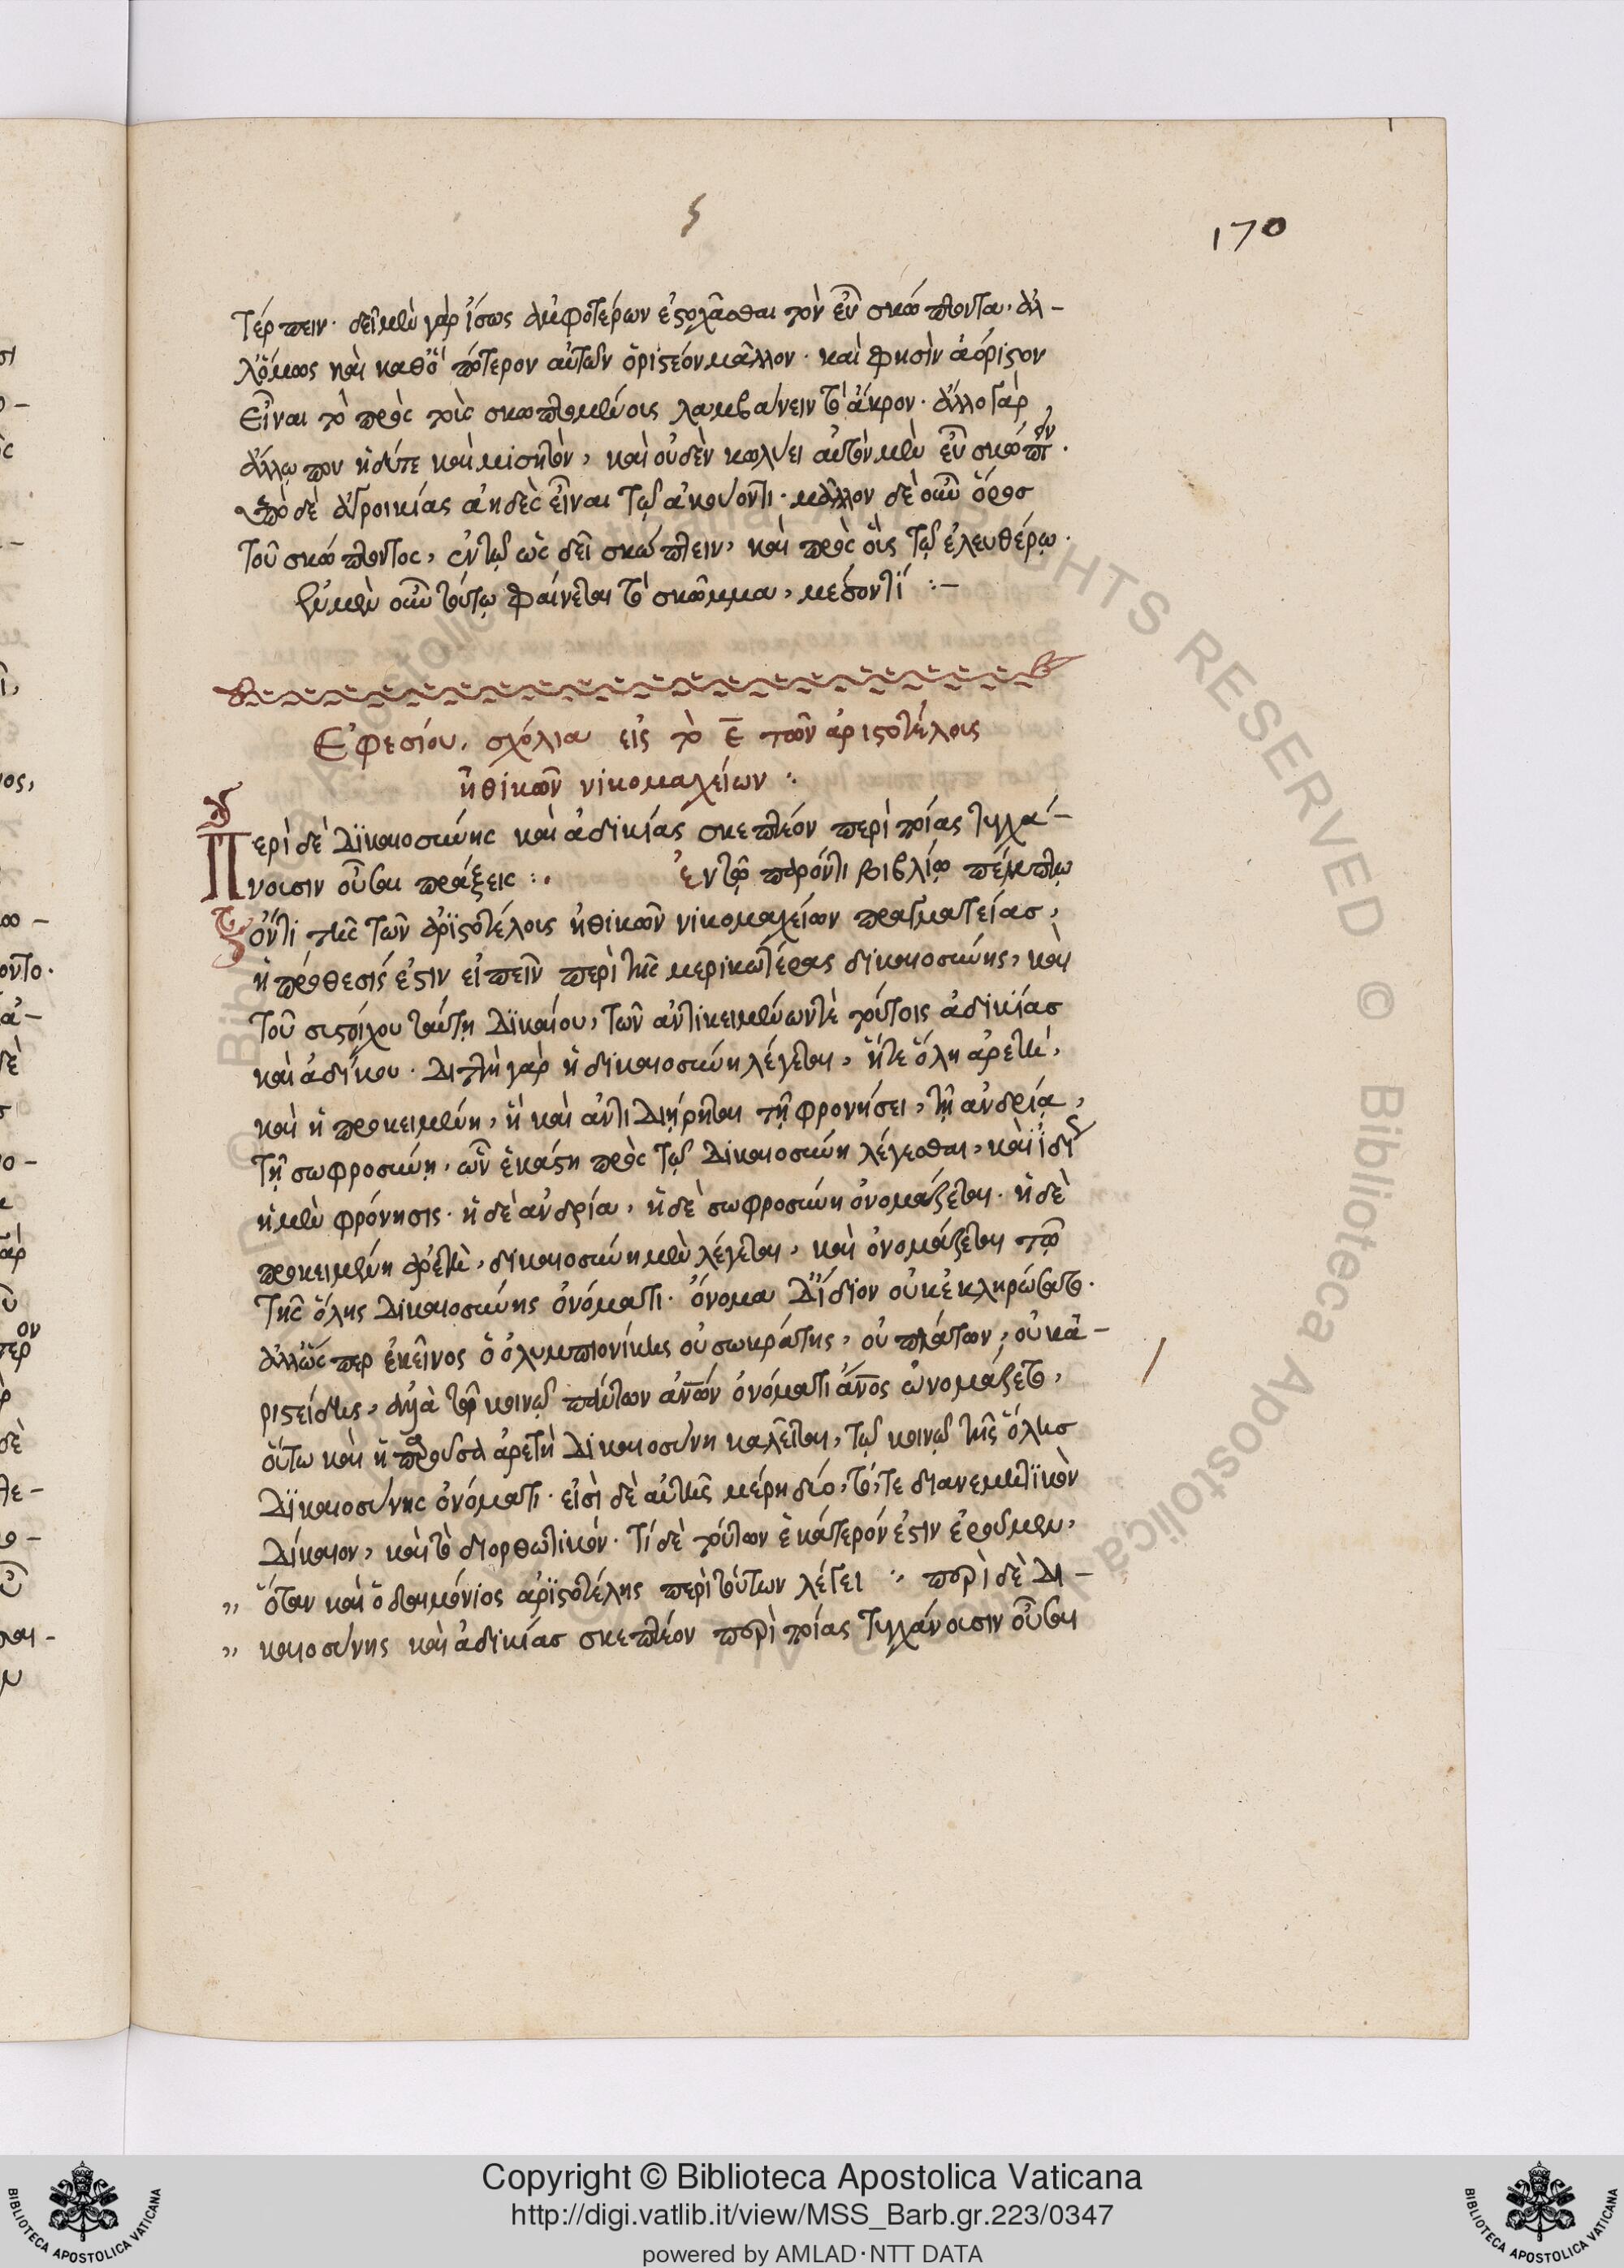 170
τέρπειν· δεῖ μὲν γὰρ ἴσως ἀμφοτέρων ἐστοχᾶσθαι τὸν εὖ σκώπτοντα· ἀλ-
λ' ὅμως καὶ καθ' ὃ πότερον αὐτῶν ὁριστέον μᾶλλον· καὶ φησὶν ἀόριστον
εἶναι τὸ πρὸς τοὺς σκωπτομένους λαμβάνειν τὸ ἄκρον· ἄλλο γὰρ
ἄλλῳ που ἡδύ τε καὶ μισητὸν, καὶ οὐδὲν κωλύει αὐτὸν μὲν εὖ σκώπτειν·
ὑπὸ δὲ ἀγροικίας ἀηδὲς εἶναι τῷ ἀκούοντι· μᾶλλον δὲ οὖν ὅρος
τοῦ σκώπτοντος, ἐν τῷ ὡς δεῖ σκώπτειν, καὶ πρὸς οὓς τῷ ἐλευθέρῳ·
εὖ μὲν οὖν τούτῳ φαίνεται τὸ σκῶμμα, :-
Ἐφεσίου, σχόλια εἰς τὸ ε̄ τῶν ἀριστοτέλους
ἠθικῶν νικομαχείων :
Περὶ δὲ δικαιοσύνης καὶ ἀδικίας σκεπτέον περὶ ποίας τυγχά-
νουσιν οὖσαι πράξεις :. ἐν τῷ παρόντι βιβλίῳ πέμπτῳ
ὄντι τῆς τῶν ἀριστοτέλους ἠθικῶν νικομαχείων πραγματείας,
ἡ πρόθεσίς ἐστιν εἰπεῖν περὶ τῆς μερικωτέρας δικαιοσύνης, καὶ
τοῦ συστοίχου ταύτῃ δικαίου, τῶν ἀντικειμένων τὲ τούτοις ἀδικίας
καὶ ἀδίκου· διττὴ γὰρ ἡ δικαιοσύνη λέγεται, ἥτε ὅλη ἀρετή,
καὶ ἡ προκειμένη, ἣ καὶ ἀντιδιῄρηται τῇ φρονήσει, τῇ ἀνδρίᾳ,
τῇ σωφροσύνῃ, ὧν ἑκάστη πρὸς τῷ δικαιοσύνη λέγεσθαι, καὶ ἰδί
ἡ μὲν φρόνησις· ἡ δὲ ἀνδρία, ἡ δὲ σωφροσύνη ὀνομάζεται· ἡ δὲ
προκειμένη ἀρετὴ, δικαιοσύνη μὲν λέγεται, καὶ ὀνομάζεται τῷ
τῆς ὅλης δικαιοσύνης ὀνόματι· ὄνομα δ' ἴδιον οὐκ ἐκληρώσατο·
ἀλλ' ὥσπερ ἐκεῖνος ὁ ὀλυμπιονίκης οὐ σωκράτης, οὐ πλάτων, οὐκ ἀ-
ριστείδης, ἀλλὰ τῷ κοινῷ πάντων ἀνων ὀνόματι ἄνος ὠνομάζετο,
οὕτω καὶ ἡ παροῦσα ἀρετὴ δικαιοσύνη καλεῖται, τῷ κοινῷ τῆς ὅλης
δικαιοσύνης ὀνόματι· εἰσὶ δὲ αὐτῆς μέρη δύο, τό, τε διανεμητικὸν
δίκαιον, καὶ τὸ διορθωτικόν· τί δὲ τούτων ἑκάτερόν ἐστιν ἐροῦμεν,
,, ὅταν καὶ ὁ δαιμόνιος ἀριστοτέλης περὶ τούτων λέγει :· περὶ δὲ δι-
,, καιοσύνης καὶ ἀδικίας σκεπτέον περὶ ποίας τυγχάνουσιν οὖσαι
Copyright © Biblioteca Apostolica Vaticana
http://digi.vatlib.it/view/MSS_Barb.gr.223/0347
powered by AMLAD·NTT DATA